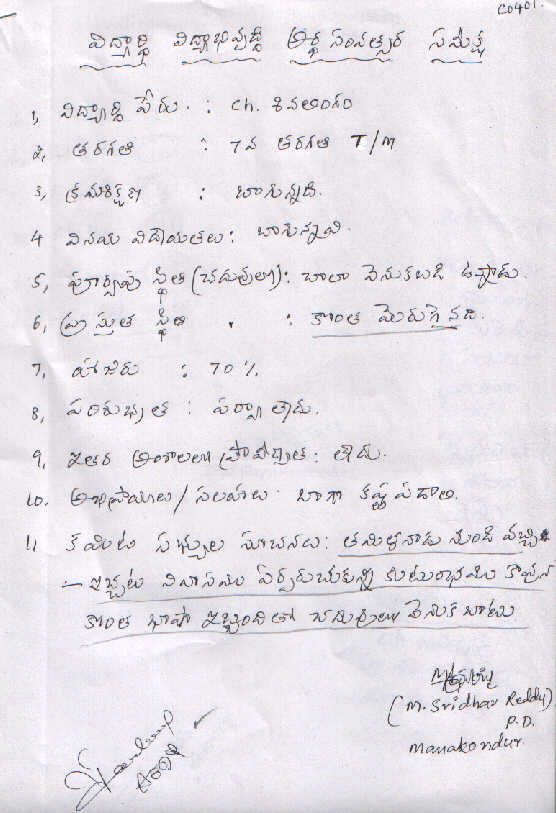 C0401.
విద్యార్థి విద్యాభివృద్ధి అర్థ సంవత్సర సమీక్ష
1, విద్యార్థి పేరు. : Ch. శివలింగం
2, తరగతి : 7వ తరగతి T/M
3, క్రమశిక్షణ : బాగున్నది.
4 వినయ విధేయతలు: బాగున్నవి.
5, పూర్వపు స్థితి (చదువులో): చాలా వెనుకబడి ఉన్నాడు.
6, ప్రస్తుత స్థితి . : కొంత మెరుగైనది.
7, హాజరు : 70 %
8, పరిశుభ్రత : పర్వాలేదు.
9, ఇతర అంశాలలో ప్రావీణ్యత: లేదు.
10. అభిప్రాయాలు/సలహాలు: బాగా కష్టపడాలి.
11 కమిటి సభ్యుల సూచనలు: తమిళనాడు నుండి వచ్చి
- ఇచ్చట నివాసము ఏర్పరుచుకున్న కుటుంబము కావున
కొంత భాషా ఇబ్బందితో చదువులో వెనుకబాటు
(M. Sridhar Reddy)
P.D.
Manakondur.